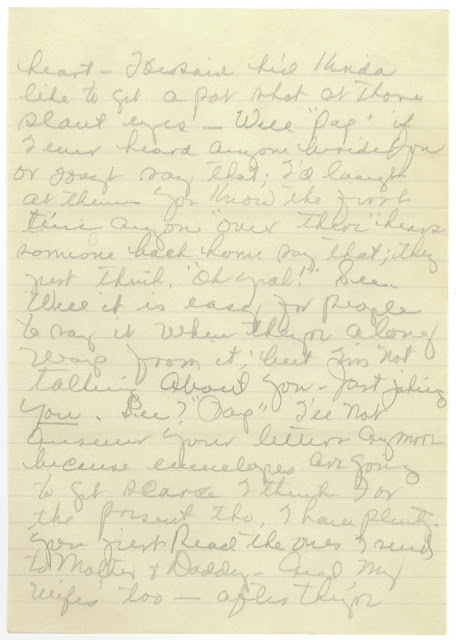 heart – You said he'd kinda
like to get a pot shot at those
slant eyes – Well "Pap" if
I ever heard anyone besides you
or  say that, I'd laugh
at them – You know the first
time anyone "over there" hears
someone back home say that; they
just think, "Oh yeah!" See.
Well it is easy for people
to say it when they're a long
ways from it, but I'm not
talking about you – just joking
you. See? "Pap" I'll not
answer your letters anymore
because envelopes are going
to get scarce I think. For
the present tho, I have plenty.
You just read the ones I send
to Mother & Daddy – and my
wife's too – after they're